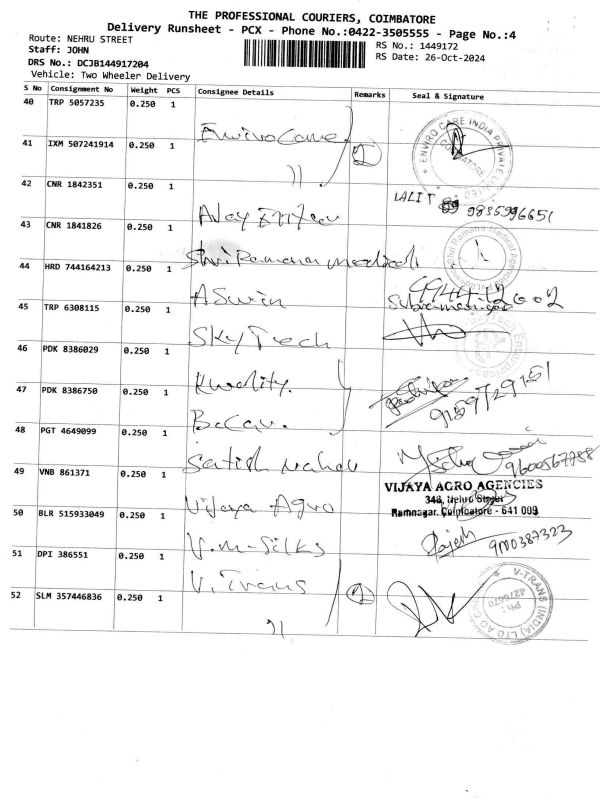 THE PROFESSIONAL COURIERS, COIMBATORE
Delivery Runsheet - PCX - Phone No.:0422-3505555 - Page No.:4
Route: NEHRU STREET
RS No.: 1449172
Staff: JOHN
RS Date: 26-Oct-2024
DRS No.: DCJB144917204
Vehicle: Two Wheeler Delivery
S No Consignment No Weight PCS Consignee Details Remarks Seal & Signature
40 TRP 5057235 0.250 1 Enviro Care
ENVIRO CARE INDIA PRIVATE LIMITED
COIMBATORE
41 IXM 507241914 0.250 1 ,, 2
42 CNR 1842351 0.250 1 Ajay
LALIT 9835996651
43 CNR 1841826 0.250 1 Shri Ramana medicals
Shri Ramana Medical Agencies
44 HRD 744164213 0.250 1 Aswin
45 TRP 6308115 0.250 1 Sky Tech
Enterprises
46 PDK 8386029 0.250 1 Kwality.
47 PDK 8386750 0.250 1
9159729151
48 PGT 4649099 0.250 1 Satish
9600567788
49 VNB 861371 0.250 1 Vijaya Agro
VIJAYA AGRO AGENCIES
348, Nehru Street
Ramnagar, Coimbatore - 641 009
50 BLR 515933049 0.250 1 V.M-Silks
Rajesh 9000387323
51 DPI 386551 0.250 1 V. Trans
52 SLM 357446836 0.250 1 ,, 2
V-TRANS (INDIA) LTD
Ph: